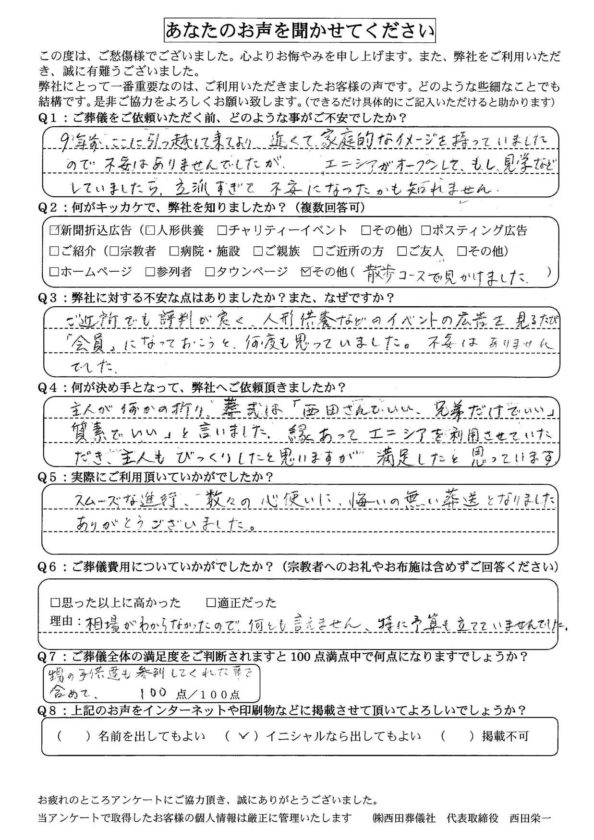 あなたのお声を聞かせてください
この度は、ご愁傷様でございました。心よりお悔やみを申し上げます。また、弊社をご利用いただ
き、誠に有難うございました。
弊社にとって一番重要なのは、ご利用いただきましたお客様の声です。どのような些細なことでも
結構です。是非ご協力をよろしくお願い致します。（できるだけ具体的にご記入いただけると助かります）
Q１：ご葬儀をご依頼いただく前、どのような事がご不安でしたか？
9年前、ここに引っ越して来てより 近くて、家庭的なイメージを持っていました
ので 不安はありませんでしたが、 エニシアがオープンして、もし、見学など
していましたら、立派すぎて 不安になったかも知れません。
Q２：何がキッカケで、弊社を知りましたか？（複数回答可）
☑新聞折込広告（□人形供養 □チャリティーイベント □その他）□ポスティング広告
□ご紹介（□宗教者 □病院・施設 □ご親族 □ご近所の方 □ご友人 □その他）
□ホームページ □参列者 □タウンページ ☑その他（散歩コースで見かけました。）
Q３：弊社に対する不安な点はありましたか？また、なぜですか？
ご近所でも評判が良く、人形供養などのイベントの広告を見るたび
「会員」になっておこうと、何度も思っていました。不安はありません
でした。
Q４：何が決め手となって、弊社へご依頼頂きましたか？
主人が何かの折り、葬式は「西田さんでいい、兄弟だけでいい」
質素でいい」と言いました。縁あってエニシアを利用させていた
だき、主人もびっくりしたと思いますが 満足したと思っています
Q５：実際にご利用頂いていかがでしたか？
スムーズな進行、数々の心使いに、悔いの無い葬送となりました
ありがとうございました。
Q６：ご葬儀費用についていかがでしたか？（宗教者へのお礼やお布施は含めずご回答ください）
□思った以上に高かった □適正だった
理由：相場がわからなかったので、何とも言えません、特に予算も立てていませんでした。
Q７：ご葬儀全体の満足度をご判断されますと 100 点満点中で何点になりますでしょうか？
甥の子供達も参列してくれた事を
含めて、 100 点/100点
Q８：上記のお声をインターネットや印刷物などに掲載させて頂いてよろしいでしょうか？
（ ）名前を出してもよい （✓）イニシャルなら出してもよい （ ）掲載不可
お疲れのところアンケートにご協力頂き、誠にありがとうございました。
当アンケートで取得したお客様の個人情報は厳正に管理いたします ㈱西田葬儀社 代表取締役 西田栄一